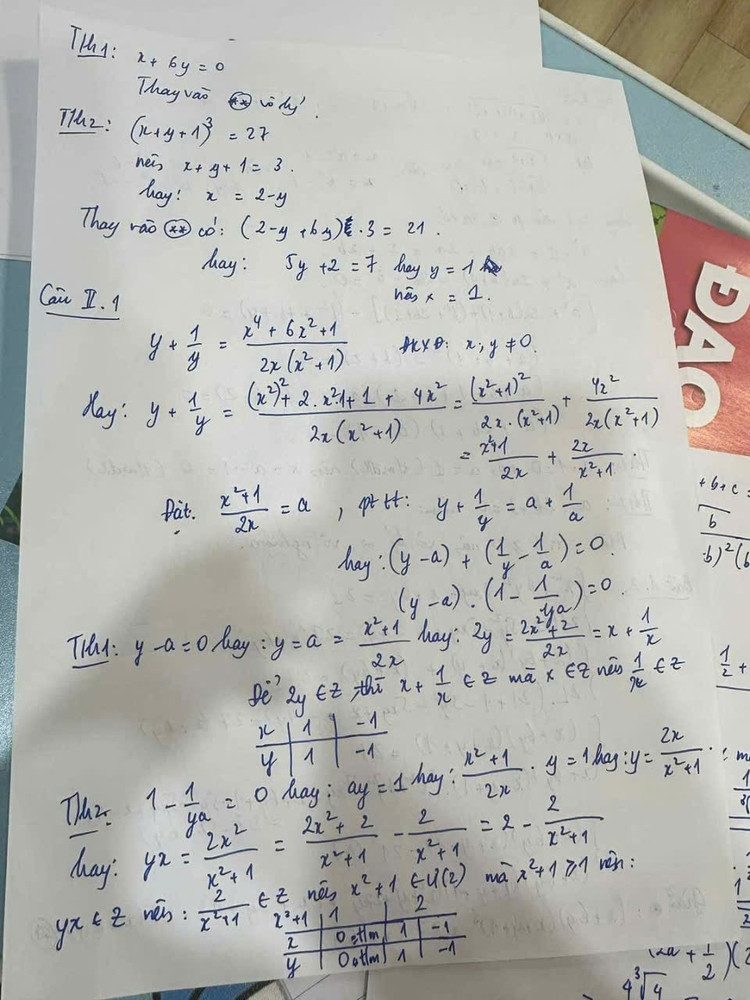 Th1: x + 6y = 0
Thay vào (**) vô lý.
Th2: (x+y+1)³ = 27
nên x+y+1 = 3.
hay: x = 2-y
Thay vào (**) có: (2-y+6y).3 = 21.
hay: 5y+2 = 7 hay y = 1
nên x = 1.
Câu II.1
y + 1/y = (x⁴ + 6x² + 1)/(2x(x²+1)) ĐKXĐ: x; y ≠ 0.
Hay: y + 1/y = ((x²)² + 2.x².1 + 1 + 4x²)/(2x(x²+1)) = (x²+1)²/(2x.(x²+1)) + 4x²/(2x(x²+1))
= (x²+1)/2x + 2x/(x²+1).
Đặt. (x²+1)/2x = a, pt tt: y + 1/y = a + 1/a
hay: (y-a) + (1/y - 1/a) = 0.
(y-a).(1 - 1/ya) = 0.
Th1: y-a = 0 hay: y = a = (x²+1)/2x hay: 2y = (2x²+2)/2x = x + 1/x
Để 2y ∈ Z thì x + 1/x ∈ Z mà x ∈ Z nên 1/x ∈ Z
x | 1 | -1
y | 1 | -1
Th2: 1 - 1/ya = 0 hay: ay = 1 hay: (x²+1)/2x . y = 1 hay: y = 2x/(x²+1).
hay: yx = 2x²/(x²+1) = (2x²+2)/(x²+1) - 2/(x²+1) = 2 - 2/(x²+1)
yx ∈ Z nên: 2/(x²+1) ∈ Z nên x²+1 ∈ Ư(2) mà x²+1 ≥ 1 nên:
x²+1 | 1 | 2
x | 0 | 1 | -1
y | 0 | 1 | -1
ĐAO
+ b + c =
b
1/2 +
(2a + 1/2)(2
4³√4